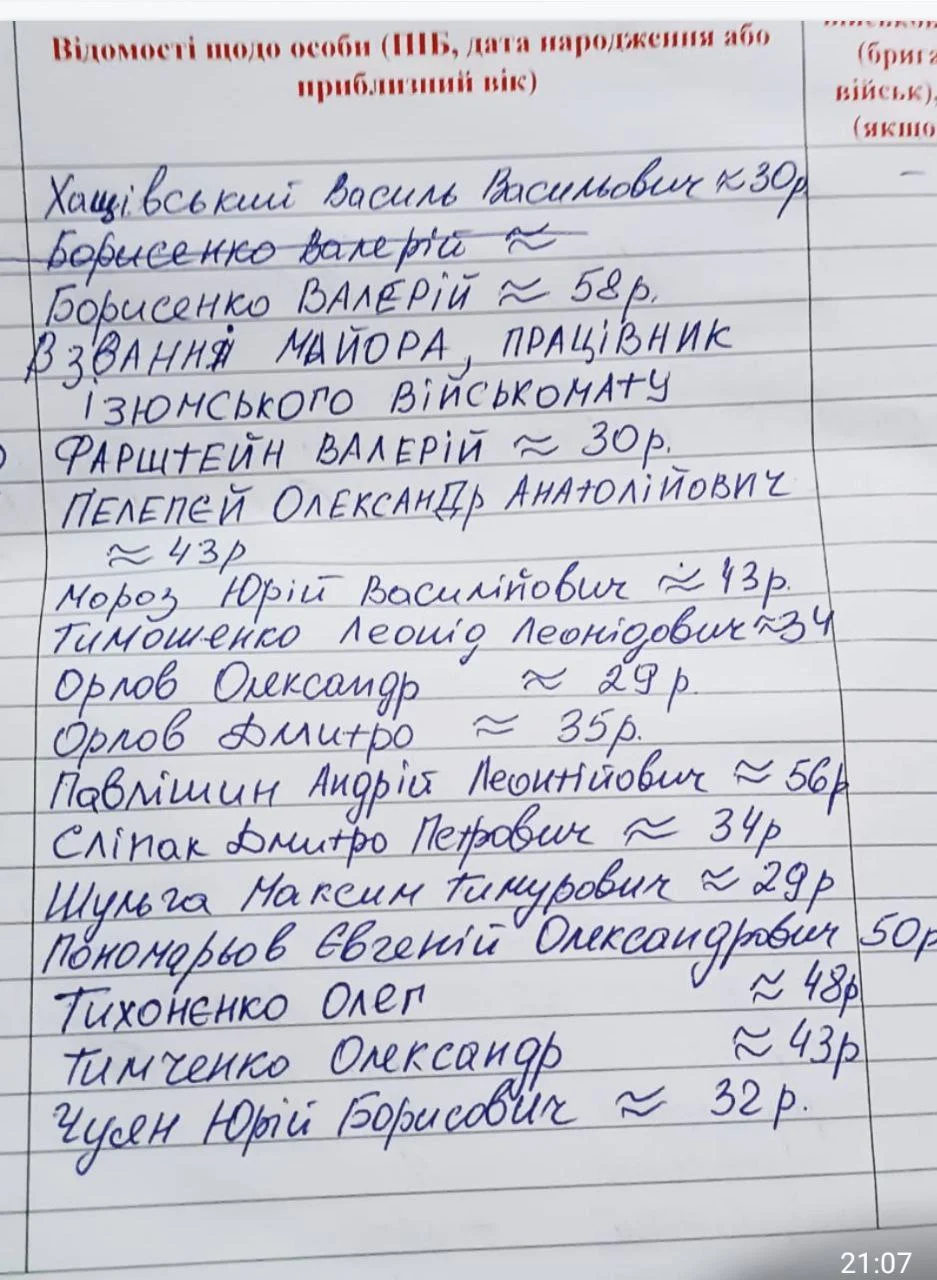 Відомості щодо особи (ПІБ, дата народження або
приблизний вік)
(брига
військ),
(якшо
Хащівський Василь Васильович ≈ 30р
Борисенко Валерій ≈
Борисенко ВАЛЕРІЙ ≈ 58р.
В ЗВАННІ МАЙОРА, ПРАЦІВНИК
ІЗЮМСЬКОГО ВІЙСЬКОМАТУ
ФАРШТЕЙН ВАЛЕРІЙ ≈ 30р.
ПЕЛЕПЄЙ ОЛЕКСАНДр АНАТОЛІЙОВИЧ
≈ 43р
Мороз Юрій Василійович ≈ 43р.
Тимошенко Леонід Леонідович ≈34
Орлов Олександр ≈ 29 р.
Орлов Дмитро ≈ 35р.
Павлішин Андрій Леонтійович ≈ 56р
Сліпак Дмитро Петрович ≈ 34р
Шульга Максим Тимурович ≈ 29р
Пономарьов Євгеній Олександрович 50р
Тихонєнко Олег ≈ 48р
Тимченко Олександр ≈ 43р
Чусян Юрій Борисович ≈ 32 р.
21:07